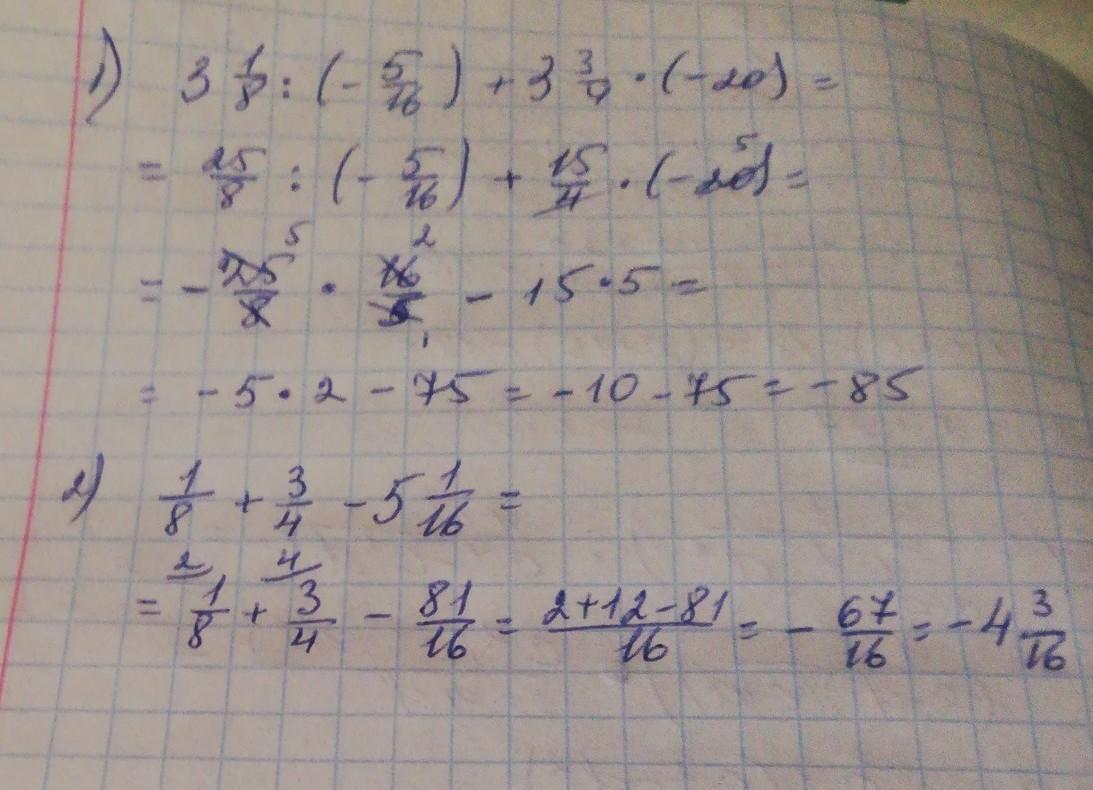 1) 3 1/8 : (- 5/16) + 3 3/4 · (-20) =
= 25/8 : (- 5/16) + 15/4 · (-20) 5 =
= - 25/8 5 · 16/5 2 1 - 15·5 =
= -5·2 - 75 = -10 - 75 = -85
2) 1/8 + 3/4 - 5 1/16 =
= 2 1/8 + 4 3/4 - 81/16 = 2+12-81/16 = - 67/16 = -4 3/16